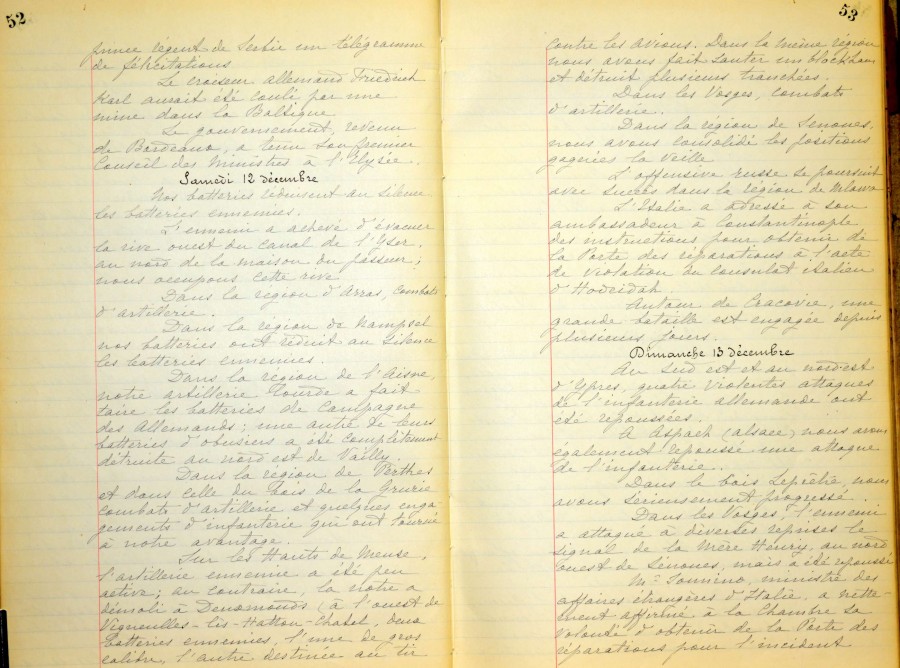 52
prince régent de Serbie un télégramme
de félicitations
Le croiseur allemand Friedrich
Karl aurait été coulé par une
mine dans la Baltique
Le gouvernement, revenu
de Bordeaux, a tenu son premier
Conseil des Ministres à l'Elysée.
Samedi 12 décembre
Nos batteries réduisent au silence
les batteries ennemies.
L'ennemi a achevé d'évacuer
la rive ouest du canal de l'Yser,
au nord de la maison du passeur;
nous occupons cette rive
Dans la région d'Arras, combats
d'artillerie.
Dans la région de Nampsel
nos batteries ont réduit au silence
les batteries ennemies.
Dans la région de l'Aisne,
notre artillerie lourde a fait
taire les batteries de campagne
des Allemands; une autre de leurs
batteries d'obusiers a été complètement
détruite au nord est de Vailly.
Dans la région de Perthes
et dans celle du bois de la Grurie
combats d'artillerie et quelques enga
gements d'infanterie qui ont tourné
à notre avantage.
Sur les Hauts de Meuse,
l'artillerie ennemie a été peu
active; au contraire, la nôtre a
démoli à Deuxmonds (à l'ouest de
Vigneulles-lès-Hatton-Chatel, deux
batteries ennemies, l'une de gros
calibre, l'autre destinée au tir
53
contre les avions. Dans la même région
nous avons fait sauter un blockhaus
et détruit plusieurs tranchées.
Dans les Vosges, combats
d'artillerie.
Dans la région de Senones,
nous avons consolidé les positions
gagnées la veille
L'offensive russe se poursuit
avec succès dans la région de Mlawa
L'Italie a adressé à son
ambassadeur à Constantinople
des instructions pour obtenir de
la Porte des réparations à l'acte
de violation du consulat italien
d'Hodeidah.
Autour de Cracovie, une
grande bataille est engagée depuis
plusieurs jours.
Dimanche 13 décembre
Au sud est et au nord est
d'Ypres, quatre violentes attaques
de l'infanterie allemande ont
été repoussées.
A Aspach (Alsace) nous avons
également repoussé une attaque
de l'infanterie.
Dans le bois Leprêtre, nous
avons sérieusement progressé.
Dans les Vosges, l'ennemi
a attaqué à diverses reprises le
Signal de la Mère Henry, au nord
Ouest de Senones, mais a été repoussé
Mr Sonnino, ministre des
affaires étrangères d'Italie, a nette-
ment affirmé à la Chambre sa
volonté d'obtenir de la Porte des
réparations pour l'incident